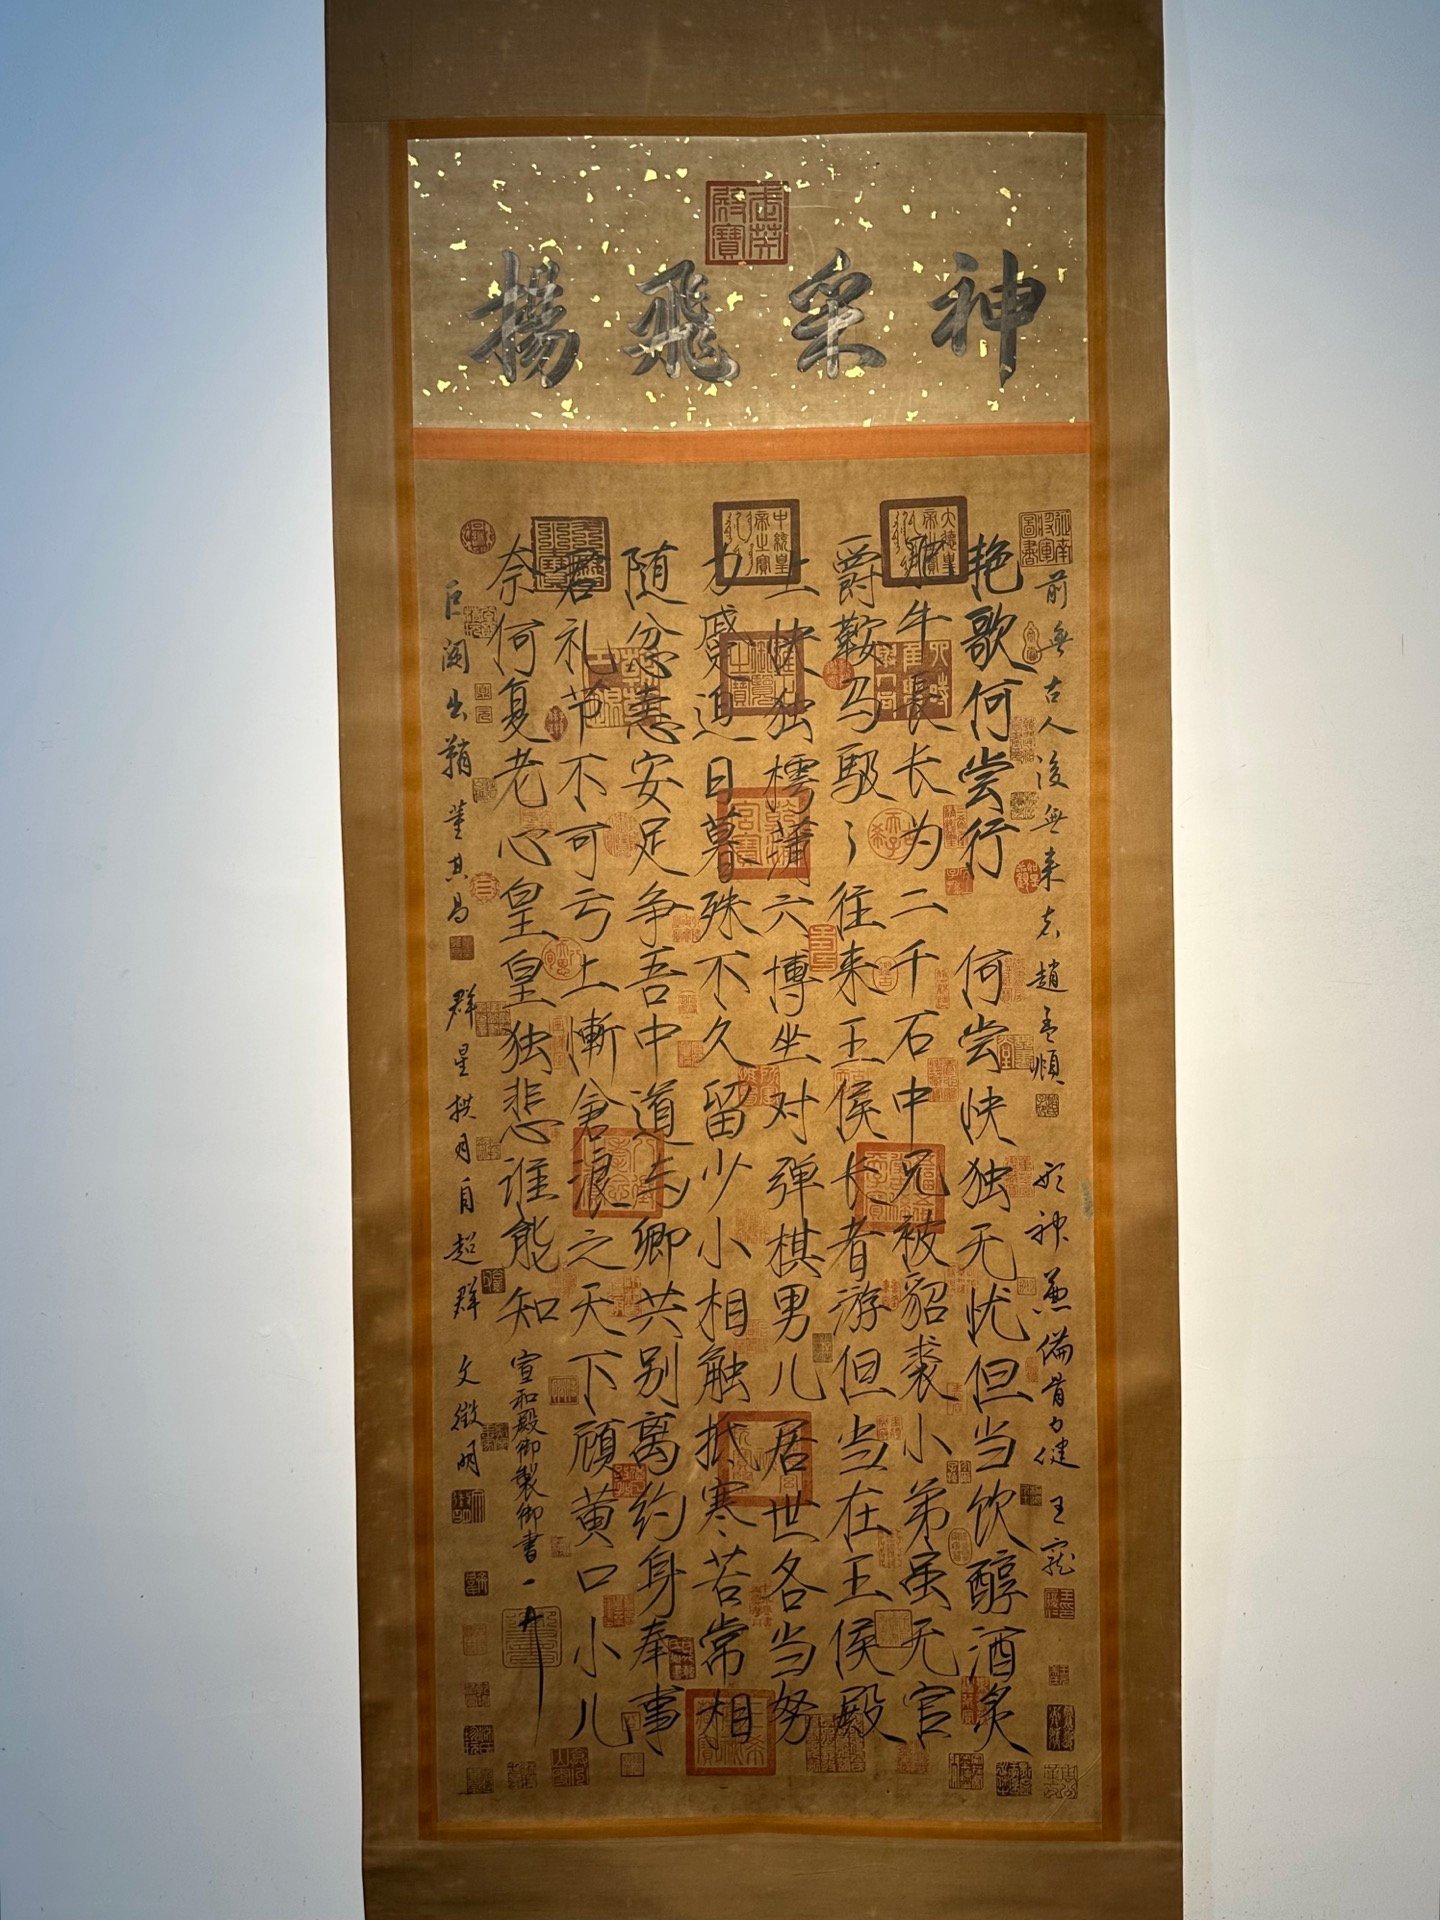 神采飛揚
前無古人後無来者 趙孟頫 形神兼備骨力健 王寵
艳歌何尝行 何尝快独无忧但当饮醇酒炙
肥牛長长为二千石中兄被貂裘小弟虽无官
爵鞍马馺〻往来王侯长者游但当在王侯殿
上快独樗蒲六博坐对弹棋男儿居世各当努
力戚迫日暮殊不久留少小相触抵寒苦常相
随忿恚安足争吾中道与卿共别离约身奉事
君礼节不可亏上慚倉浪之天下顾黄口小儿
奈何复老心皇皇独悲谁能知 宣和殿御製御書
巨阙出鞘 董其昌 群星拱月自超群 文徵明